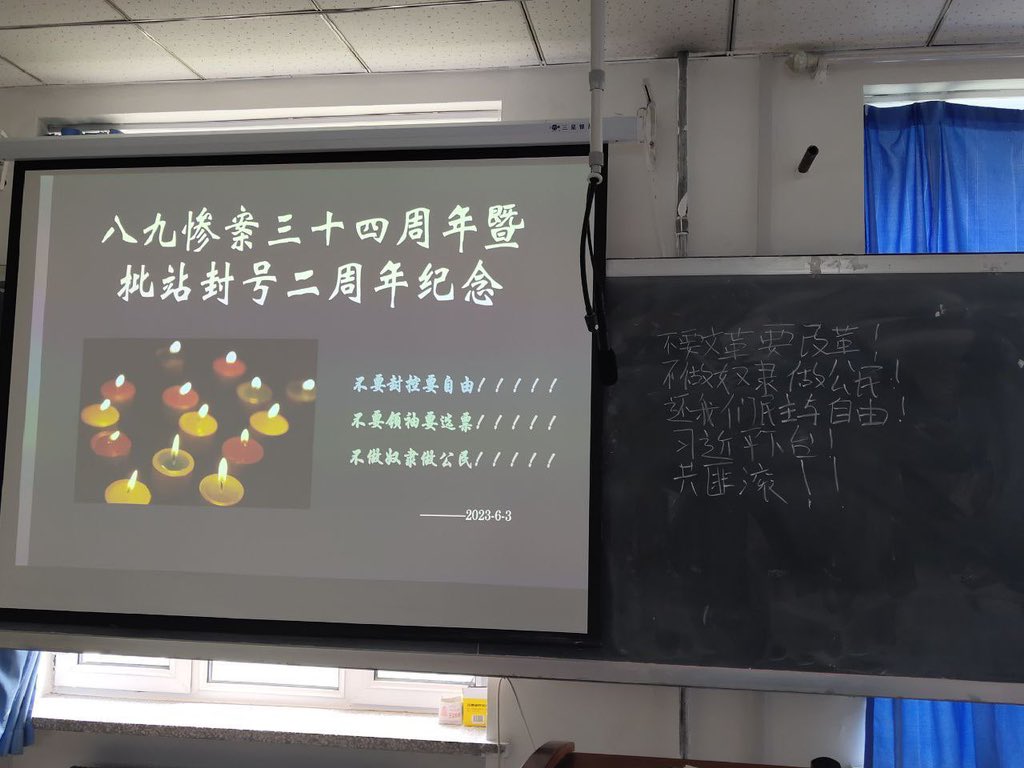 八九惨案三十四周年暨
批站封号二周年纪念
不要封控要自由！！！！！！
不要领袖要选票！！！！！！
不做奴隶做公民！！！！！！
——2023-6-3
不要文革要改革！
不做奴隶做公民！
还我们民主与自由！
习近平下台！
共匪滚！！